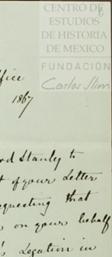 CENTRO DE
ESTUDIOS
DE HISTORIA
DE MEXICO
FUNDACIÓN
Carlos Slim
ffice
1867
rd Stanley to
t of your Letter
equesting that
on your behalf
's Legation in